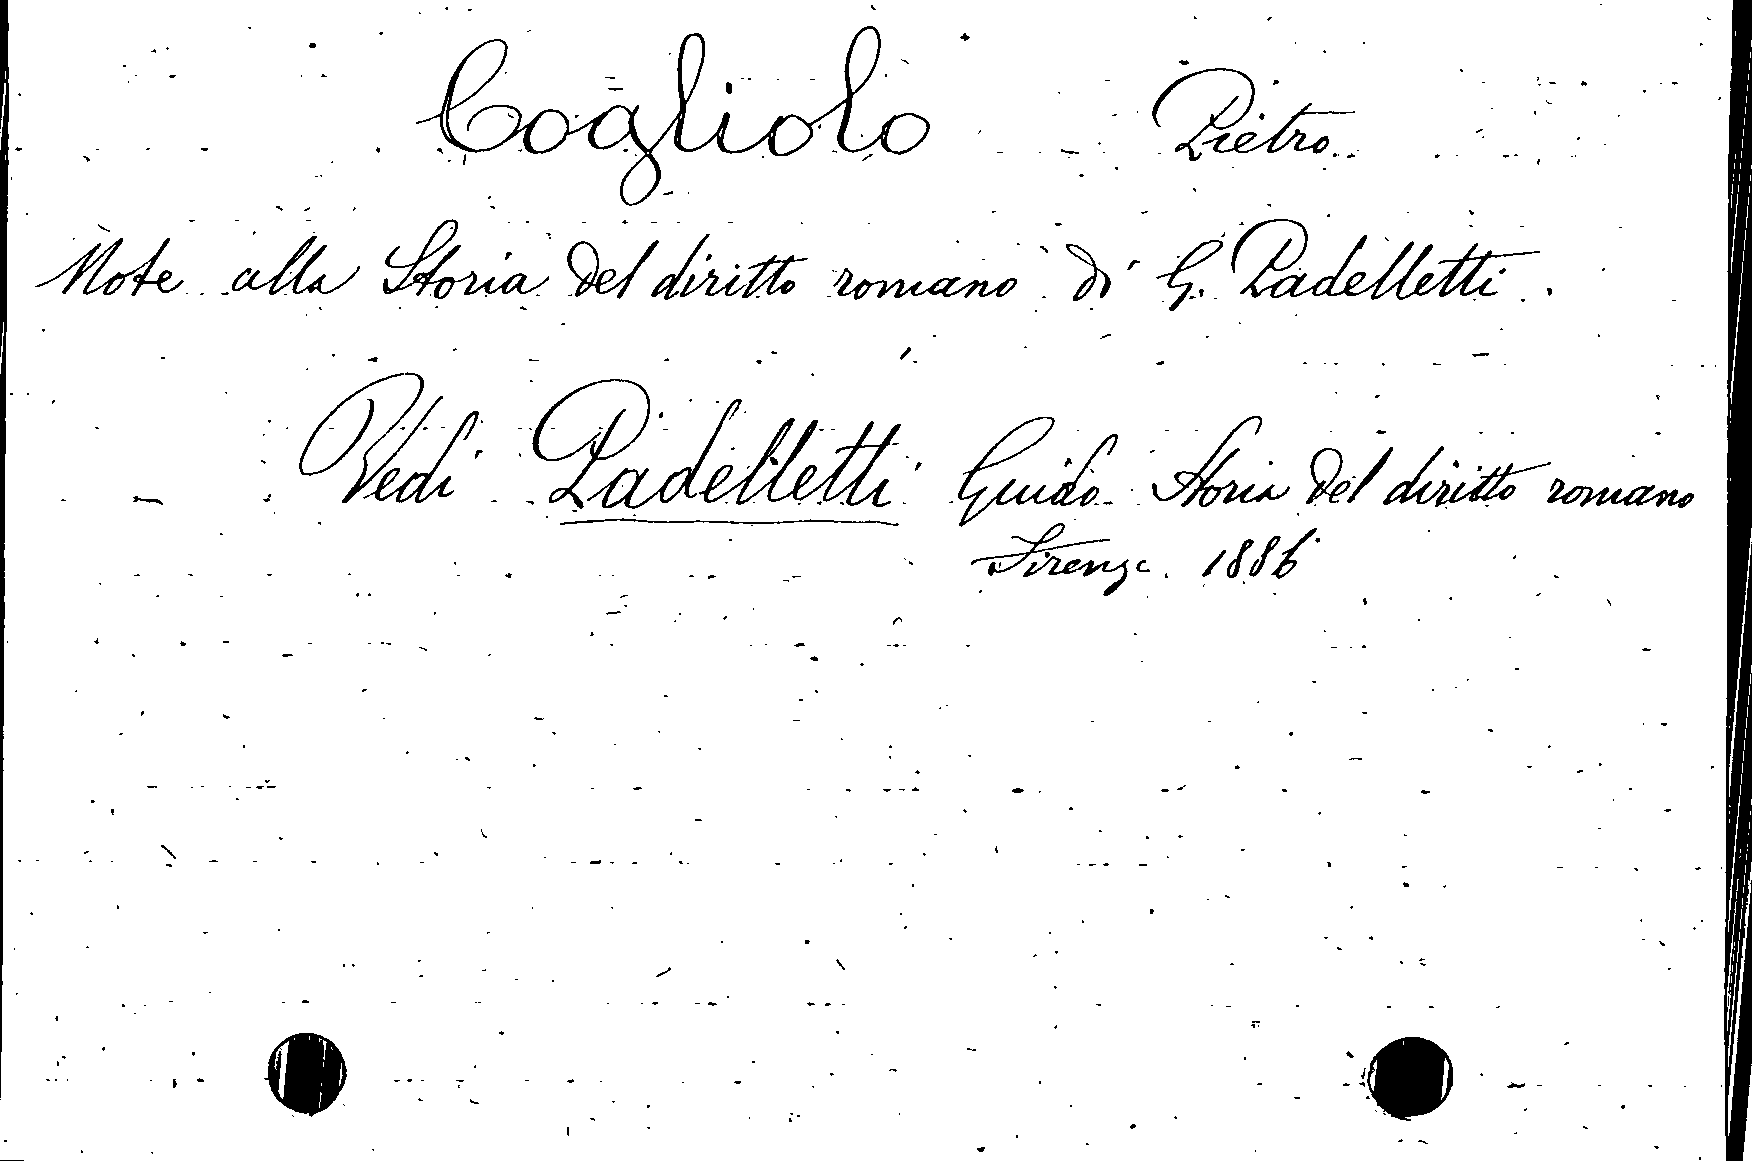 Cogliolo Pietro
Note alla Storia del diritto romano di G. Padelletti.
Vedi Padelletti Guido Storia del diritto romano
Firenze. 1886